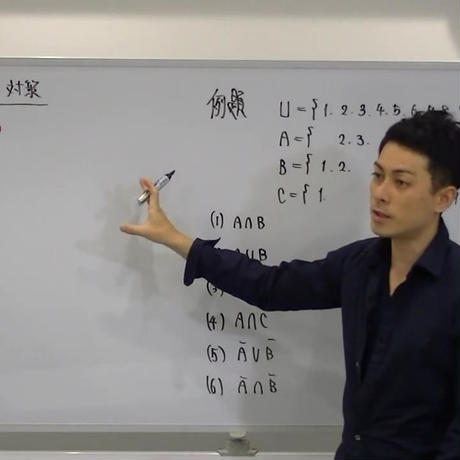 対策
例題 U={1.2.3.4.5.6.7.8.
A={ 2.3.
B={1.2.
C={1.
(1) A∩B
A∪B
(3)
(4) A∩C
(5) Ā∪B̄
(6) Ā∩B̄